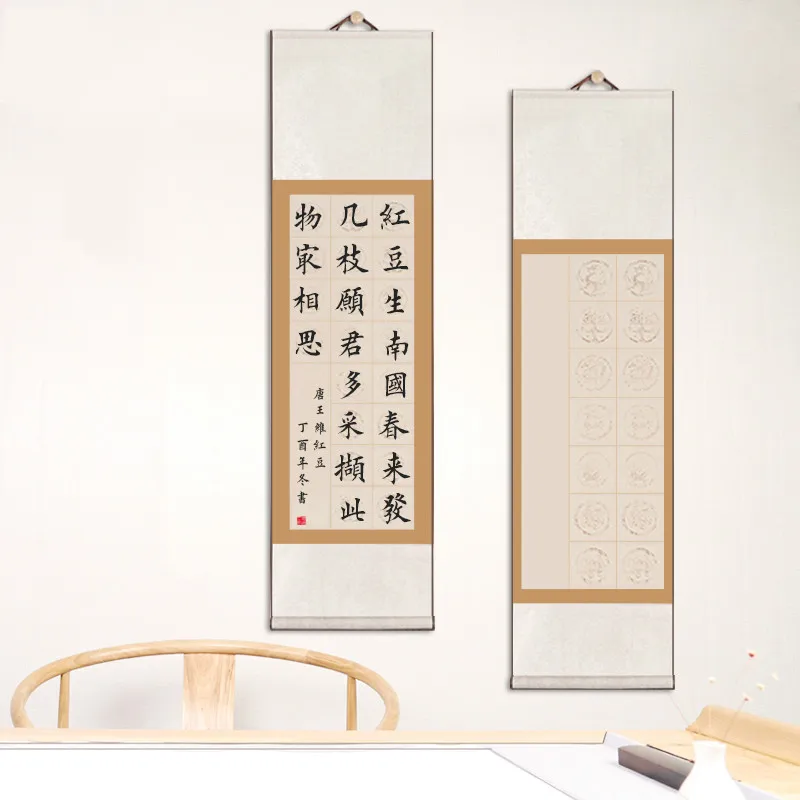 紅豆生南國春来發
几枝願君多采擷此
物冣相思
唐王維紅豆
丁酉年冬書